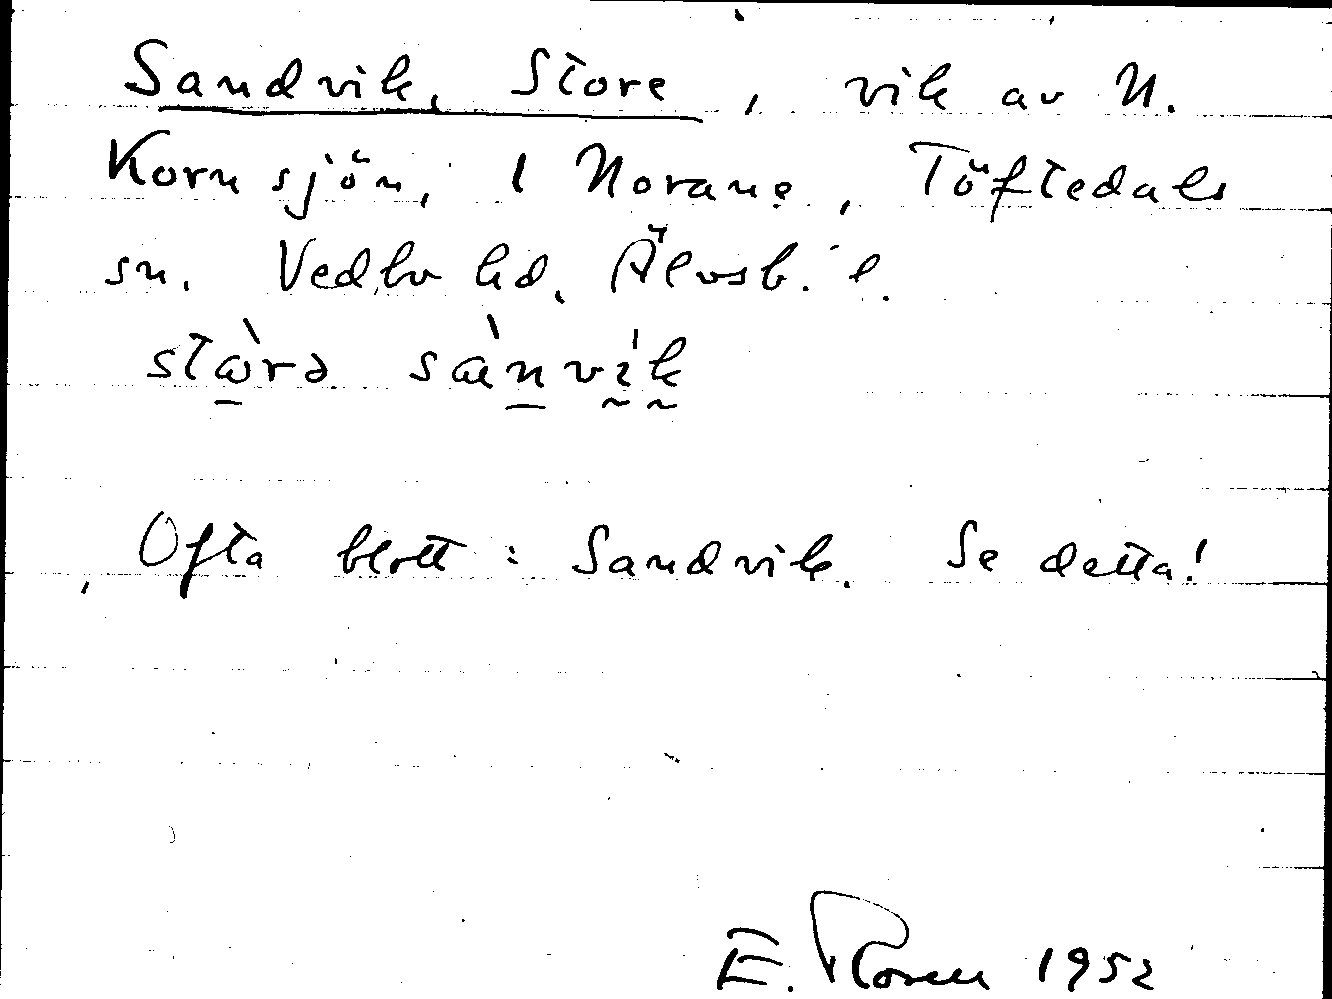 Sandvik, Store, vik av N.
Kornsjön, 1 Norane, Töftedals
sn. Vedbo hd. Älvsb. l.
Ofta blott: Sandvik. Se detta!
E. Rosen 1952